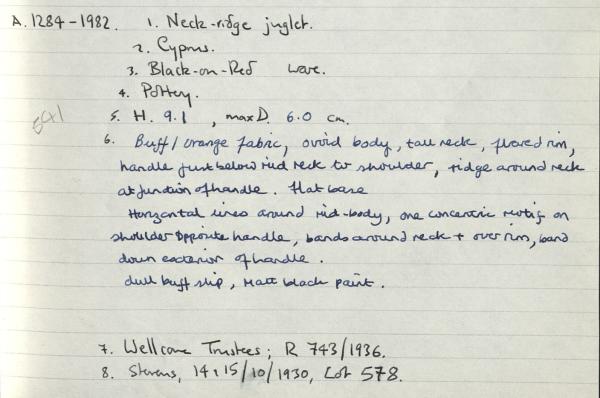 A. 1284-1982. 1. Neck-ridge juglet.
2. Cyprus.
3. Black-on-Red ware.
4. Pottery.
5. H. 9.1 , max D. 6.0 cm.
6. Buff/orange fabric, ovoid body, tall neck, flared rim,
handle just below mid neck to shoulder, ridge around neck
at junction of handle. Flat base
Horizontal lines around mid-body, one concentric motif on
shoulder opposite handle, bands around neck + over rim, band
down exterior of handle.
dull buff slip, matt black paint.
7. Wellcome Trustees; R 743/1936.
8. Stevens, 14 & 15/10/1930, Lot 578.